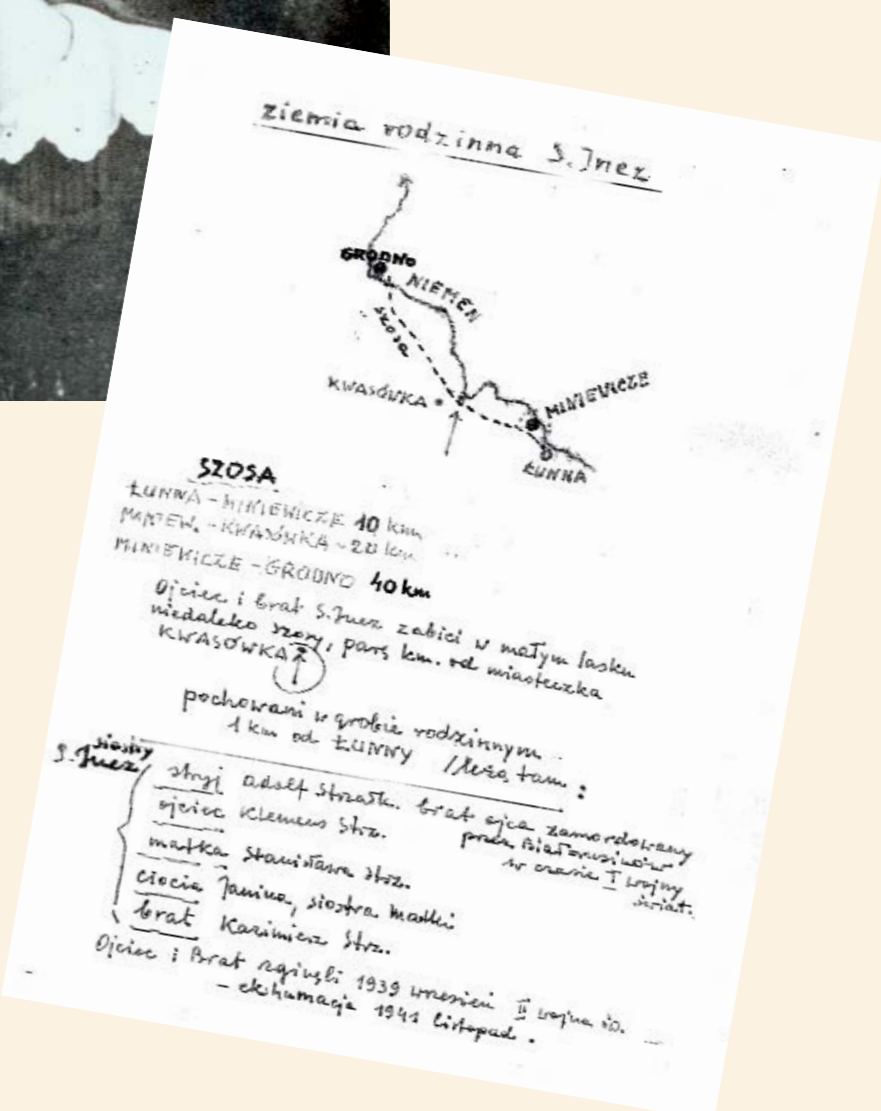 ziemia rodzinna S. Inez
GRODNO
NIEMEN
SZOSA
KWASÓWKA
MINIEWICZE
ŁUNNA
SZOSA
ŁUNNA - MINIEWICZE 10 km
MINIEW. - KWASÓWKA - 20 km
MINIEWICZE - GRODNO 40 km
Ojciec i brat S. Inez zabici w małym lasku
niedaleko szosy, parę km. od miasteczka
KWASÓWKA
pochowani w grobie rodzinnym
1 km od ŁUNNY /leżą tam:
siostry
S. Inez
stryj adolf Strzałk. brat ojca zamordowany
przez Białorusinów
w czasie I wojny
świat.
ojciec Klemens Strz.
matka Stanisława Strz.
ciocia Janina, siostra matki
brat Kazimierz Strz.
Ojciec i Brat zginęli 1939 wrzesień II wojna św.
- ekshumacja 1941 listopad.